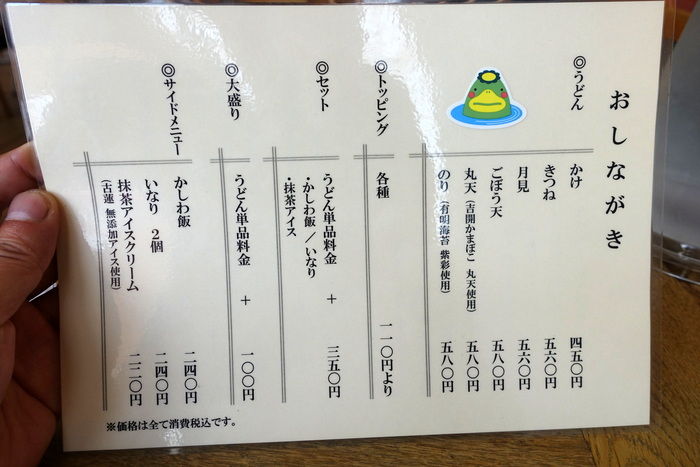 おしながき
◎うどん
かけ 四五〇円
きつね 五六〇円
月見 五六〇円
ごぼう天 五八〇円
丸天(吉開かまぼこ 丸天使用) 五八〇円
のり(有明海苔 紫彩使用) 五八〇円
◎トッピング
各種 一一〇円より
◎セット
うどん単品料金 + 三五〇円
・かしわ飯/いなり
・抹茶アイス
◎大盛り
うどん単品料金 + 一〇〇円
◎サイドメニュー
かしわ飯 二四〇円
いなり 2個 二四〇円
抹茶アイスクリーム 二二〇円
(古蓮 無添加アイス使用)
※価格は全て消費税込です。